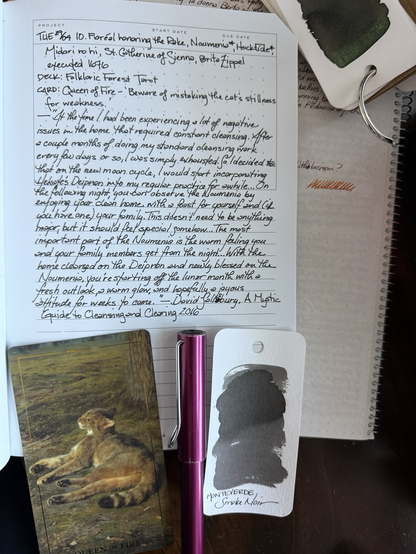 PROJECT START DATE DUE DATE
TUE *64 10. Foréal honoring the Rake, Noumenia*, Hocktide*,
Midori no hi, St. Catherine of Sienna, Brita Zippel
executed 1676
DECK: Folkloric Forest Tarot
CARD: Queen of Fire - "Beware of mistaking the cat's stillness
for weakness.
"At the time I had been experiencing a lot of negative
issues in the home that required constant cleansing. After
a couple months of doing my standard cleansing work
every few days or so, I was simply exhausted. So I decided
that on the new moon cycle, I would start incorporating
Hekate's Deipnon into my regular practice for awhile... On
the following night, you can observe the Noumenia by
enjoying your clean home, with a feast for yourself and (if
you have one) your family. This doesn't need to be anything
major, but it should feel special somehow... The most
important part of the Noumenia is the warm feeling you
and your family members get from the night... With the
home cleansed on the Deipnon and newly blessed on the
Noumenia, you're starting off the lunar month with a
fresh outlook, a warm glow, and hopefully a joyous
attitude for weeks to come." - David Salisbury, A Mystic
Guide to Cleansing and Clearing 2016
QUEEN OF FIRE
MONTEVERDE
Smoke Noir